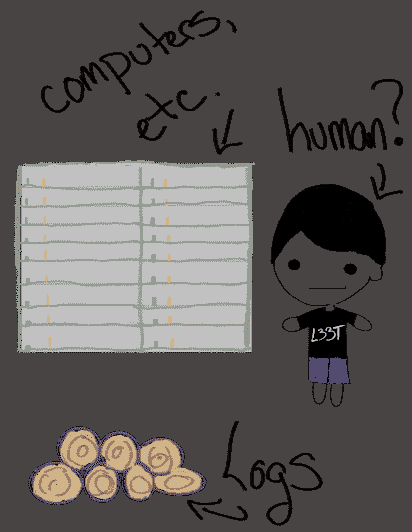 computers,
etc.
human?
L33T
Logs